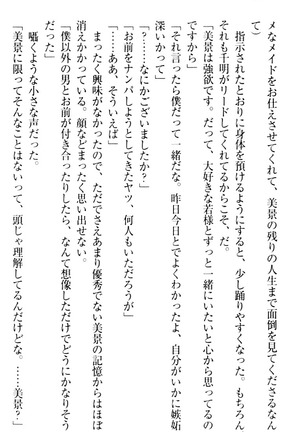 メなメイドをお仕えさせてくれて、美景の残りの人生まで面倒を見てくださるなん
て）
　指示されたとおりに身体を預けるようにすると、少し踊りやすくなった。もちろん
それも千明がリードしてくれてるからこそ、だ。
「美景は強欲です。だって、大好きな若様とずっと一緒にいたいと心から思ってるの
ですから」
「それ言ったら僕だって一緒だな。昨日今日とでよくわかったよ、自分がいかに嫉妬
深いかって」
「？……なにかございましたか？」
「お前をナンパしようとしてきたヤツ、何人もいただろうが」
「……ああ、そういえば」
　まったく興味がなかったので、ただでさえあまり優秀でない美景の記憶からはほぼ
消えかかっている。顔などまったく思い出せない。
「僕以外の男とお前が付き合ったりしたら、なんて想像しただけでどうにかなりそう
だった」
　囁くような小さな声だった。
「美景に限ってそんなことはないって、頭じゃ理解してるんだけどな。……美景？」